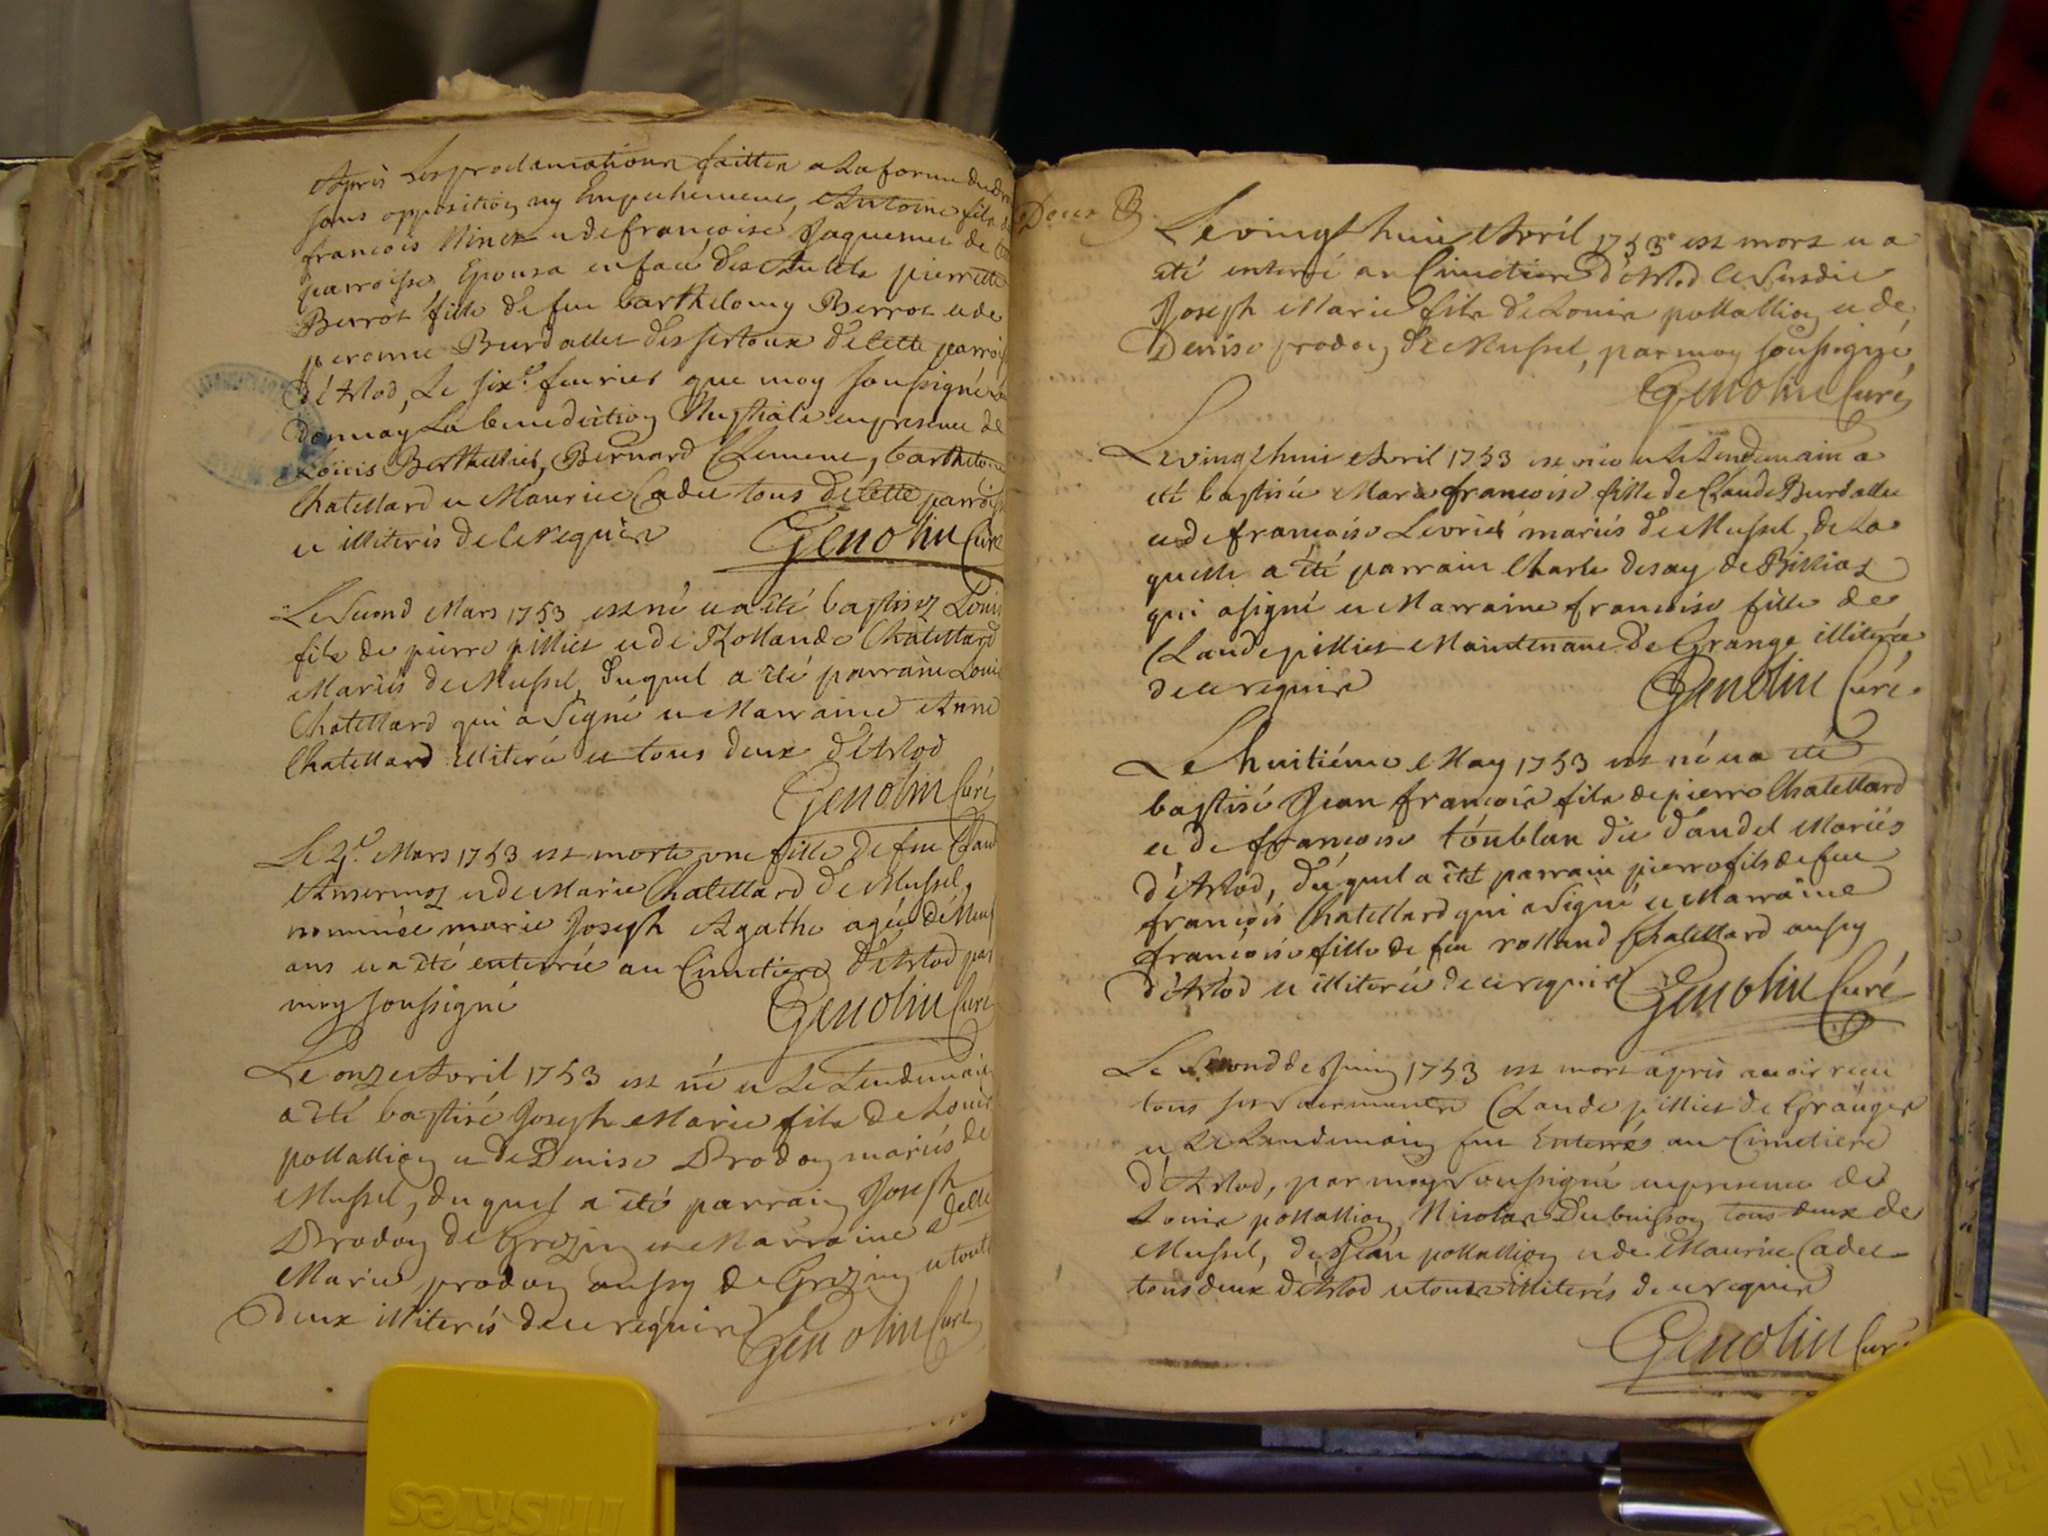 Après les proclamations faittes a la forme du
sans opposition ny Empechement, Antoine fils
françois Ninet et de françoise Jaquemet de
parroisse Epousa en face des Autels pierrette
Berrot fille de feu barthelemy Berrot et de
peronne Burdallet des sertoux de cette parrois
d'Arlod, Le six.e feurier que moy soussigné
donnay La benediction Nuptiale en presence de
Loüis Berthelier, Bernard Clement, barthelemy
Chatellard et Maurice Cadet tous de cette parroisse
et illiteris de ce requis
Genolin Curé
Le Second Mars 1753 est né et a été baptisez Louis
fils de pierre pilliet et de Rollande Chatellard
Mariés de Mussel, duquel a été parrain Louis
Chatellard qui a Signé et Marraine Anne
Chatellard illiterée et tous deux d'Arlod
Genolin Curé
Le Mars 1753 est morte une fille de feu Claude
Ansermoz et de Marie Chatellard de Mussel,
nommée marie Joseph Agathe agée de Neuf
ans et a été enterrée au Cimetiere d'Arlod par
moy soussigné
Genolin Curé
Le onze Avril 1753 est né et Le Lendemain
a été baptisé Joseph Marie fils de Louis
pollallion et de Denise Brodon mariés de
Mussel, du quel a été parrain Joseph
Brodon de Grezin et Marraine
Marie prodon aussy de Grezin et tout
deux illiterés de ce requis
Genolin Curé
Deux B.
Le vingt huit Avril 1753 est mort et a
été enterré au Cimetiere d'Arlod le Susdit
Joseph Marie fils de Louis pollallion et de
Denise prodon de Mussel, par moy soussigné
Genolin Curé
Le vingt huit Avril 1753 est née et le Lendemain a
été baptisée Marie françoise fille de Claude Burdallet
et de françoise Levrier mariés de Mussel, de La
quelle a été parrain Charle desay de Billiat
qui a signé et Marraine françoise fille de
Claude pilliet Maintenant de Grange illiterée
de ce requis
Genolin Curé.
Le huitiéme May 1753 est né et a été
baptisé Jean françois fils de pierre Chatellard
et de françoise toublan dit d'audel Mariés
d'Arlod, du quel a été parrain pierre fils de feu
françois Chatellard qui a Signé et Marraine
françoise fille de feu rolland Chatellard aussy
d'Arlod et illiterée de ce requis
Genolin Curé
Le Second de Juin 1753 est mort après auoir reçu
tous ses sacrements Claude pilliet de Granges
et Le Lendemain fut Enterré au Cimetiere
d'Arlod, par moy Soussigné en presence de
Louis pollallion, Nicolas Dubuisson tous deux de
Mussel, de Jean pollallion et de Maurice Cadet
tous deux d'Arlod et tous illiterés de ce requis
Genolin Curé